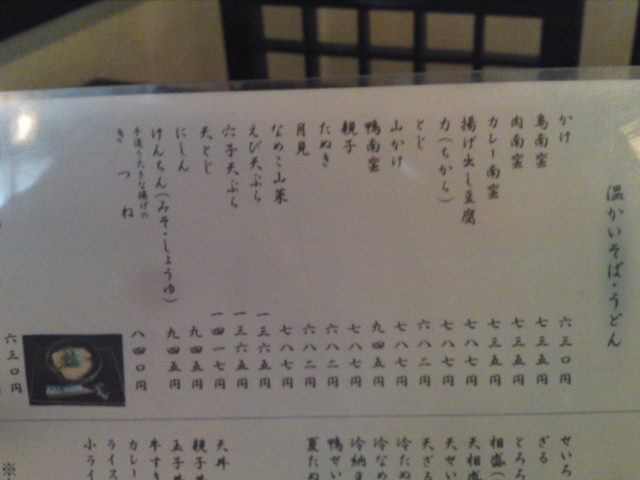 温かいそば・うどん
かけ 六三〇円
鳥南蛮 七三五円
肉南蛮 七三五円
カレー南蛮 七三五円
揚げ出し豆腐 七八七円
力(ちから) 七八七円
とじ 六八二円
山かけ 七八七円
鴨南蛮 九四五円
親子 七八七円
たぬき 六八二円
月見 六八二円
なめこ山菜 七八七円
えび天ぷら 一三六五円
穴子天ぷら 一三六五円
天とじ 一四一七円
にしん 九四五円
けんちん(みそ・しょうゆ) 九四五円
手造り大きな揚げの
きつね 八四〇円
六三〇円
せいろ
ざる
とろろ
相盛(
天相盛
天せい
天ざる
冷たぬ
冷なめ
冷納
鴨せい
夏たぬ
天丼
親子丼
玉子丼
牛すき
カレー
ライス
小ライ
※